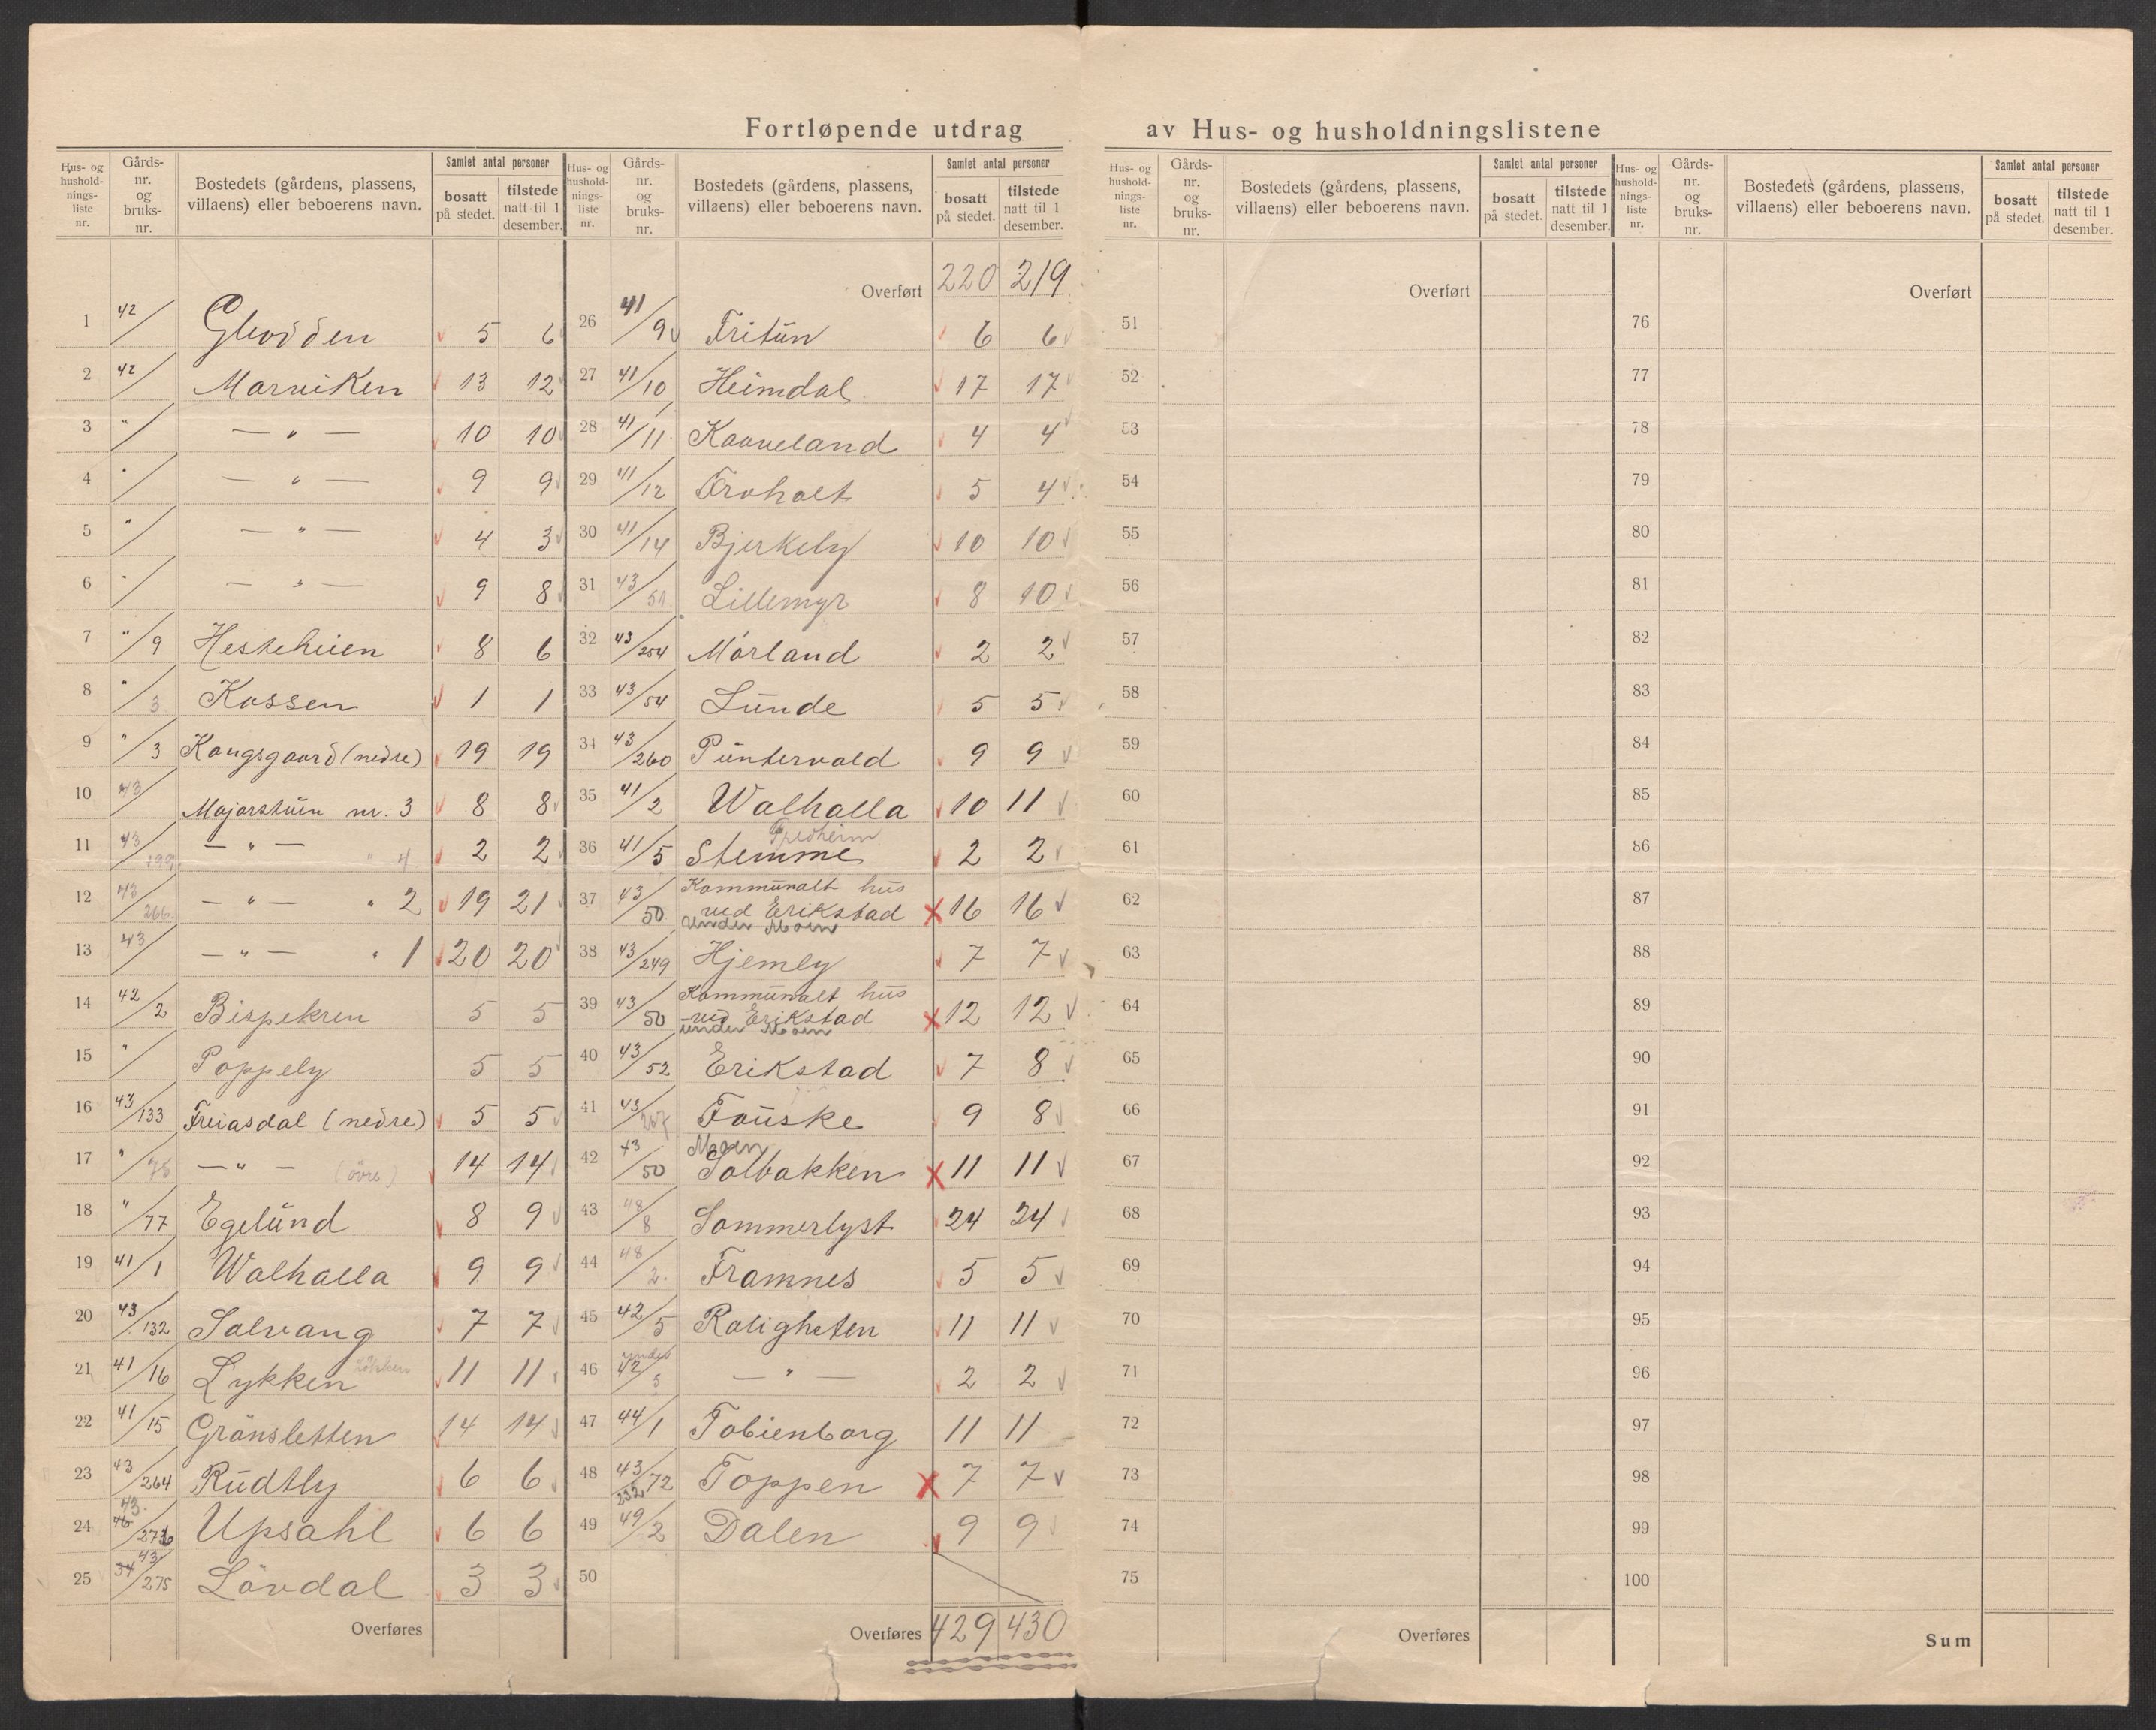 Fortløpende utdrag av Hus- og husholdningslistene
Hus- og hushold- nings- liste nr. | Gårds- nr. og bruks- nr. | Bostedets (gårdens, plassens, villaens) eller beboerens navn. | Samlet antal personer | bosatt på stedet. | tilstede natt til 1 desember.
1 42/ Glodden 5 6
2 42/ Marviken 13 12
3 "/ — " — 10 10
4 "/ — " — 9 9
5 "/ — " — 4 3
6 "/ — " — 9 8
7 "/9 Hesteheien 8 6
8 "/3 Kossen 1 1
9 "/3 Kongsgaard (nedre) 19 19
10 43/ Majorstuen nr. 3 8 8
11 43/199 — " — " 4 2 2
12 43/266 — " — " 2 19 21
13 43/ — " — " 1 20 20
14 42/2 Bispekren 5 5
15 "/ Poppely 5 5
16 43/133 Freiasdal (nedre) 5 5
17 "/78 — " — (övre) 14 14
18 "/77 Egelund 8 9
19 41/1 Walhalla 9 9
20 43/132 Solvang 7 7
21 41/16 Lykken 11 11
22 41/15 Grönsletten 14 14
23 43/264 Rudtly 6 6
24 43/ Upsahl 6 6
25 43/275 Lövdal 3 3
Overføres
Hus- og hushold- nings- liste nr. | Gårds- nr. og bruks- nr. | Bostedets (gårdens, plassens, villaens) eller beboerens navn. | Samlet antal personer | bosatt på stedet. | tilstede natt til 1 desember.
Overført 220 219
26 41/9 Fritun 6 6
27 41/10 Heimdal 17 17
28 41/11 Kaaveland 4 4
29 41/12 Froholt 5 4
30 41/14 Bjerkely 10 10
31 43/51 Lillemyr 8 10
32 43/254 Mörland 2 2
33 43/54 Lunde 5 5
34 43/260 Puntervold 9 9
35 41/2 Walhalla 10 11
Fredheim
36 41/5 Stemme 2 2
Kommunalt hus
37 43/50 ved Erikstad 16 16
under Moen
38 43/249 Hjemly 7 7
Kommunalt hus
39 43/50 ved Erikstad 12 12
under Moen
40 43/52 Erikstad 7 8
41 43/267 Fauske 9 8
Moen
42 43/50 Solbakken 11 11
43 48/8 Sommerlyst 24 24
44 48/2 Framnes 5 5
45 42/5 Roligheten 11 11
under
46 42/5 — " — 2 2
47 44/1 Tobienborg 11 11
48 43/72 232 Toppen 7 7
49 49/2 Dalen 9 9
50
Overføres 429 430
Hus- og hushold- nings- liste nr. | Gårds- nr. og bruks- nr. | Bostedets (gårdens, plassens, villaens) eller beboerens navn. | Samlet antal personer | bosatt på stedet. | tilstede natt til 1 desember.
Overført
51
52
53
54
55
56
57
58
59
60
61
62
63
64
65
66
67
68
69
70
71
72
73
74
75
Overføres
Hus- og hushold- nings- liste nr. | Gårds- nr. og bruks- nr. | Bostedets (gårdens, plassens, villaens) eller beboerens navn. | Samlet antal personer | bosatt på stedet. | tilstede natt til 1 desember.
Overført
76
77
78
79
80
81
82
83
84
85
86
87
88
89
90
91
92
93
94
95
96
97
98
99
100
Sum